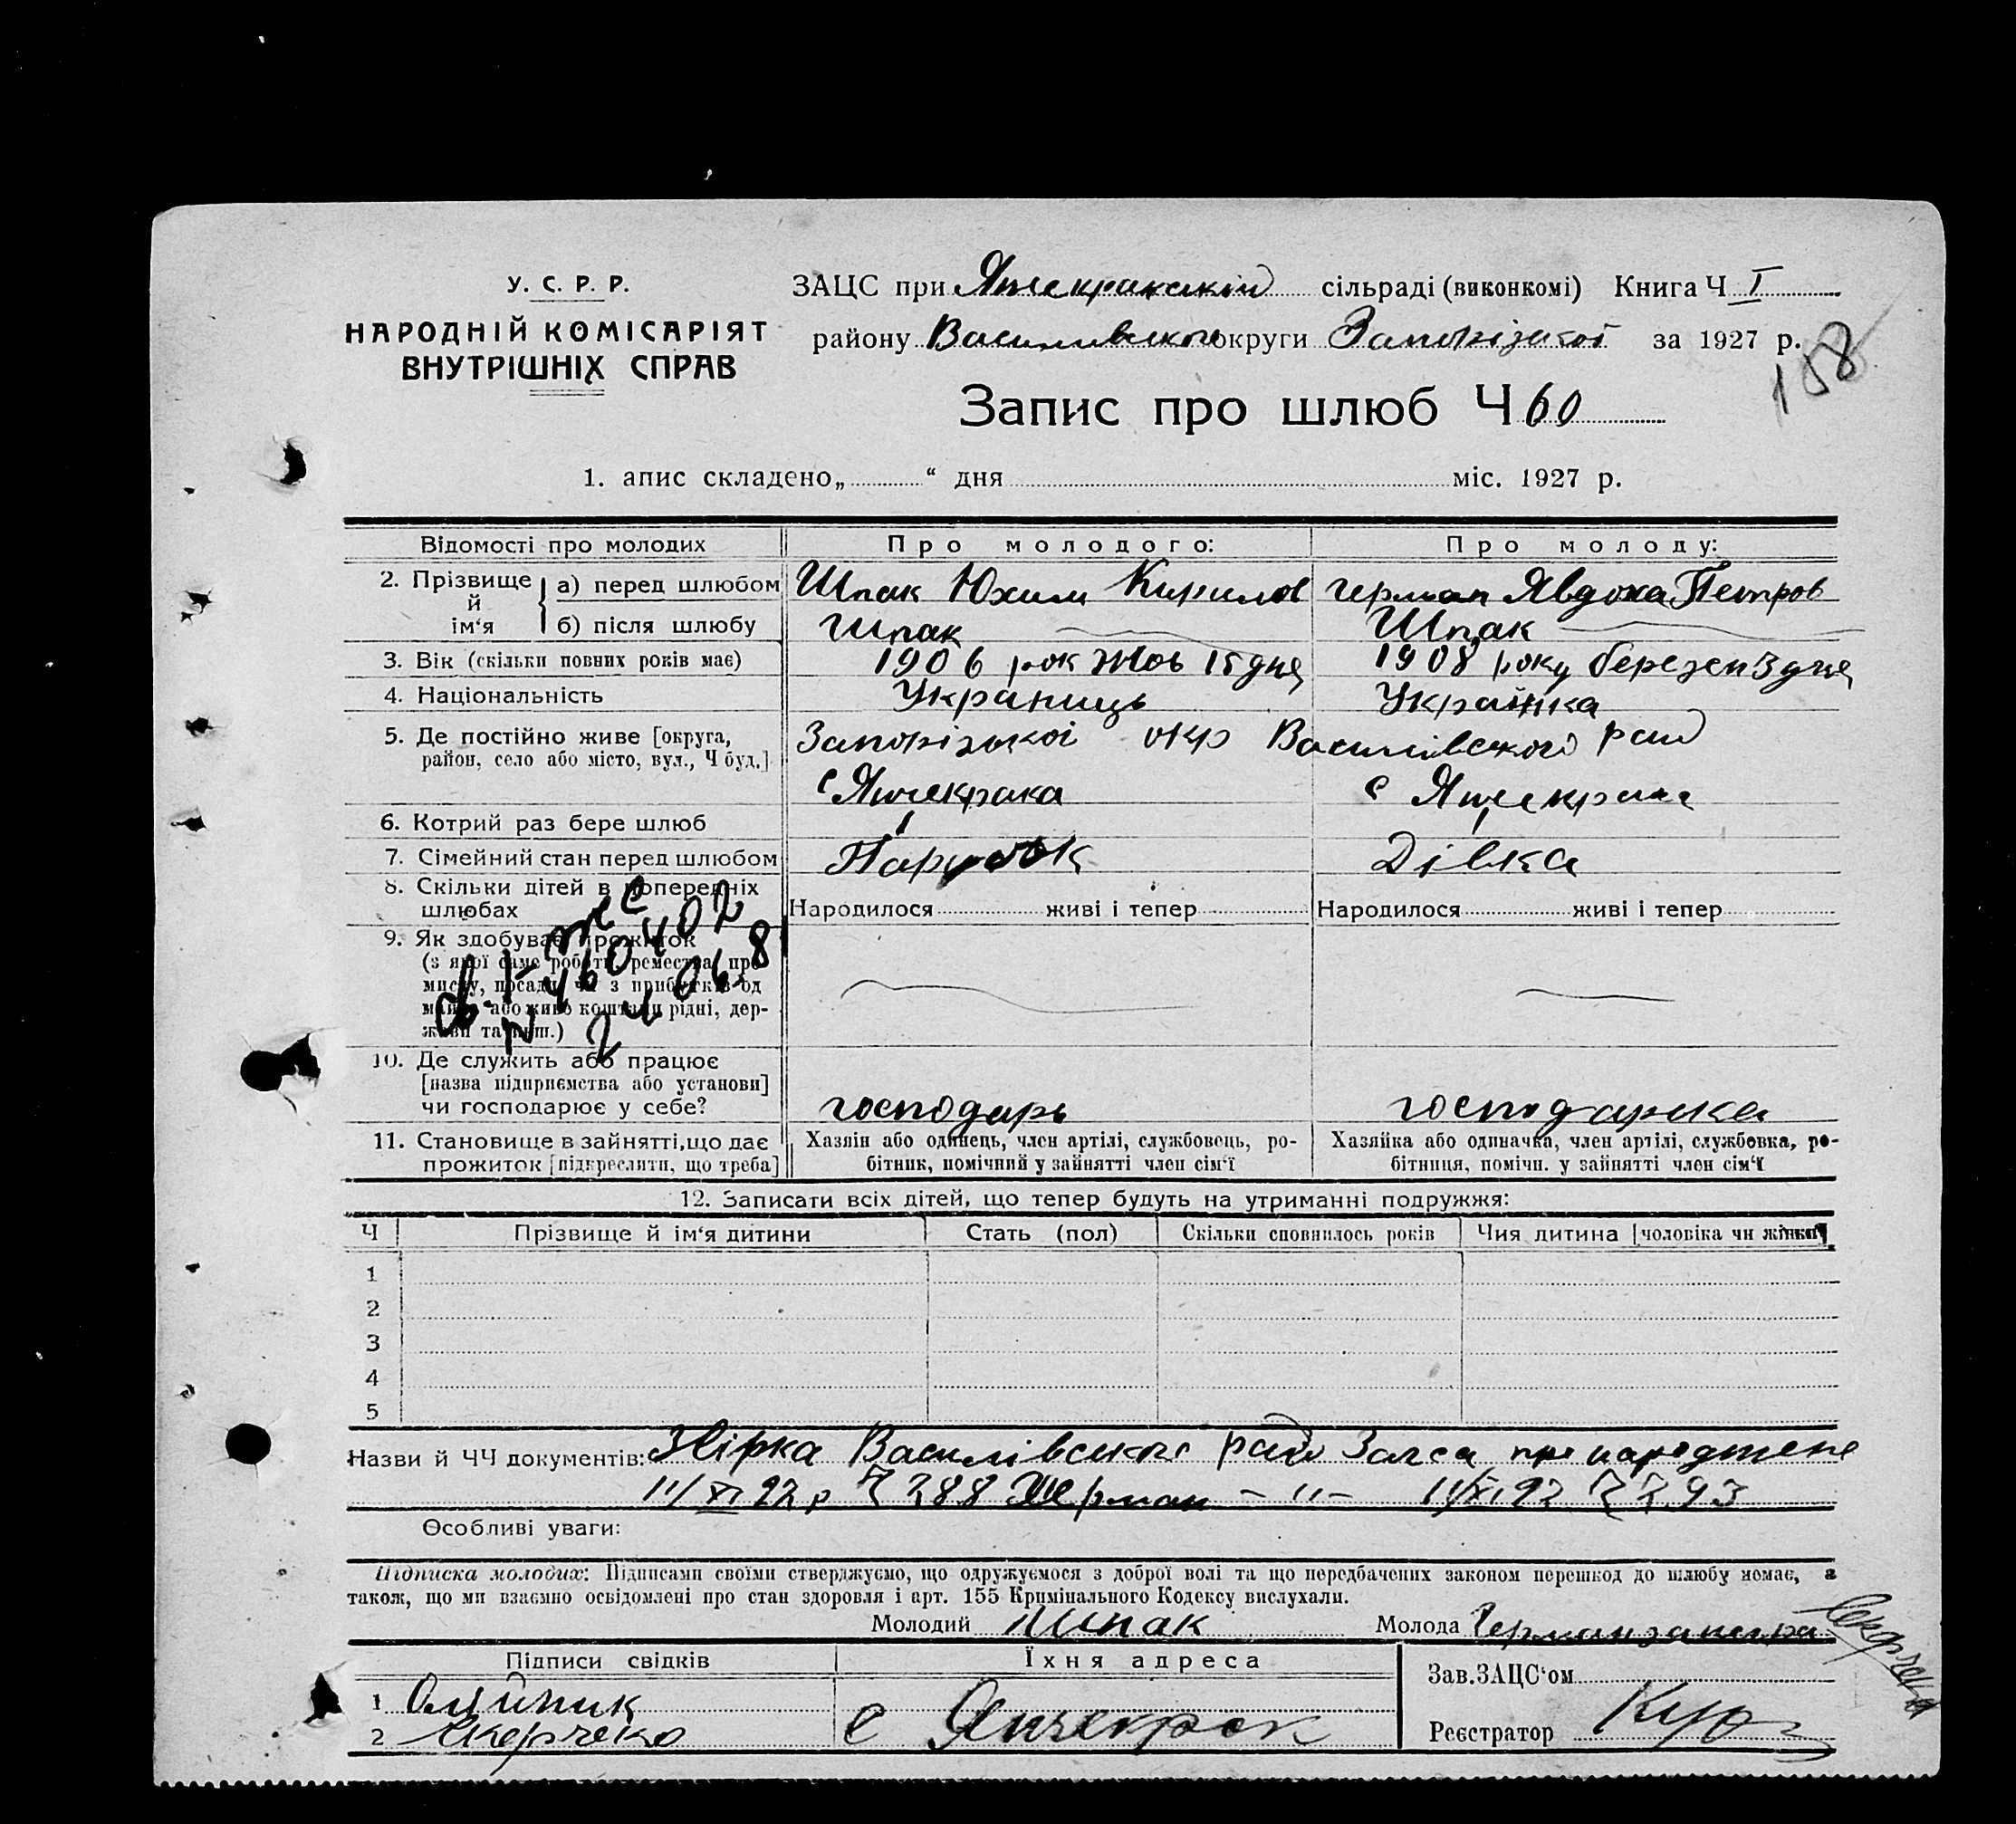 У. С. Р. Р.
НАРОДНІЙ КОМІСАРІЯТ
ВНУТРІШНІХ СПРАВ
ЗАЦС при Янчекракскій сільраді (виконкомі) Книга Ч I
району Василівського округи Запорізької за 1927 р.
158
Запис про шлюб Ч 60
1. апис складено „ “ дня міс. 1927 р.
Відомості про молодих Про молодого: Про молоду:
2. Прізвище й ім‘я а) перед шлюбом Шпак Юхим Кирилов Герман Явдоха Петров
б) після шлюбу Шпак Шпак
3. Вік (скільки повних років має) 1906 рок Жов 15 дня 1908 року березен 3 дня
4. Національність Украинць Українка
5. Де постійно живе [округа, район, село або місто, вул., Ч буд.] Запорізької окр Василівського рай
с Янчекрака с Янчекрака
6. Котрий раз бере шлюб 1 1
7. Сімейний стан перед шлюбом Парубок Дівка
8. Скільки дітей в попередніх шлюбах Народилося живі і тепер Народилося живі і тепер
9. Як здобуває прожиток
(з якої саме роботи, ремества, про-
мислу, посади, чи з прибутків од
майна або живе коштами рідні, дер-
жави та инш.)
460402
24 06 81
10. Де служить або працює
[назва підприємства або установи]
чи господарює у себе? господарь господарка
11. Становище в зайнятті, що дає Хазяїн або одинець, член артілі, службовець, ро- Хазяйка або одиначка, член артілі, службовка, ро-
прожиток [підкреслити, що треба] бітник, помічний у зайнятті член сім‘ї бітниця, помічн. у зайнятті член сім‘ї
12. Записати всіх дітей, що тепер будуть на утриманні подружжя:
Ч Прізвище й ім‘я дитини Стать (пол) Скільки сповнилось років Чия дитина [чоловіка чи жінки]
1
2
3
4
5
Назви й ЧЧ документів: Звірка Василівської рай Загса про народжене
11/XI 27 р 288 Герман – „ – 11/XI 27 293
Особливі уваги:
Підписка молодих: Підписами своїми стверджуємо, що одружуємося з доброї волі та що передбачених законом перешкод до шлюбу немає, а
також, що ми взаємно освідомлені про стан здоровля і арт. 155 Кримінального Кодексу вислухали.
Молодий Шпак Молода Герман
Підписи свідків Їхня адреса Зав. ЗАЦС‘ом
1 Олійник
2 с Янчекрак Реєстратор